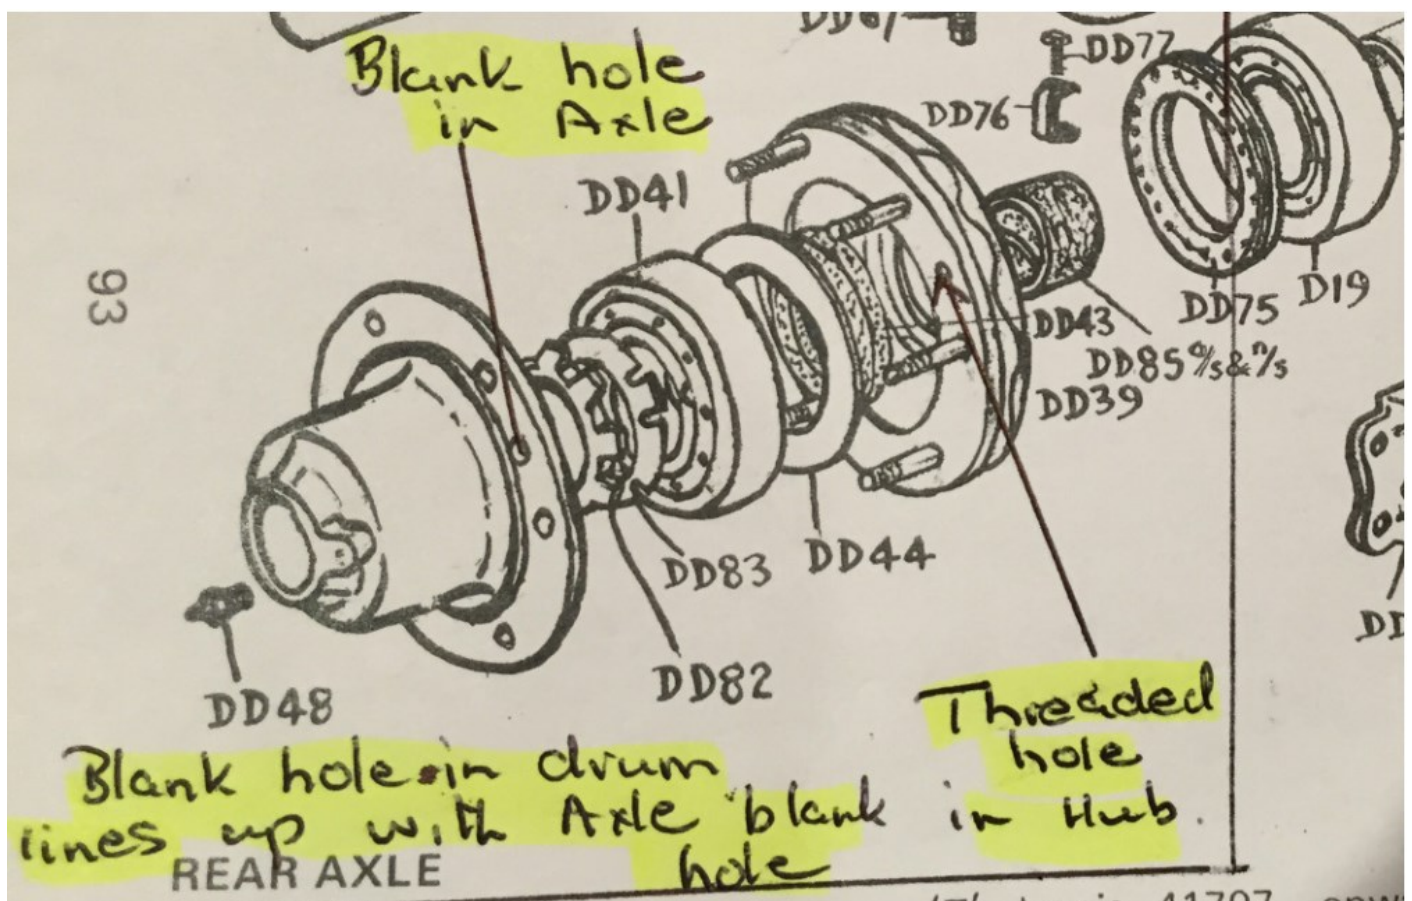 Blank hole
in Axle
DD77
DD76
DD41
DD75
D19
DD43
DD85 o/s & n/s
DD39
93
DD83
DD44
DD82
DD48
Threaded
hole
in Hub.
Blank hole in drum
lines up with Axle blank
hole
REAR AXLE